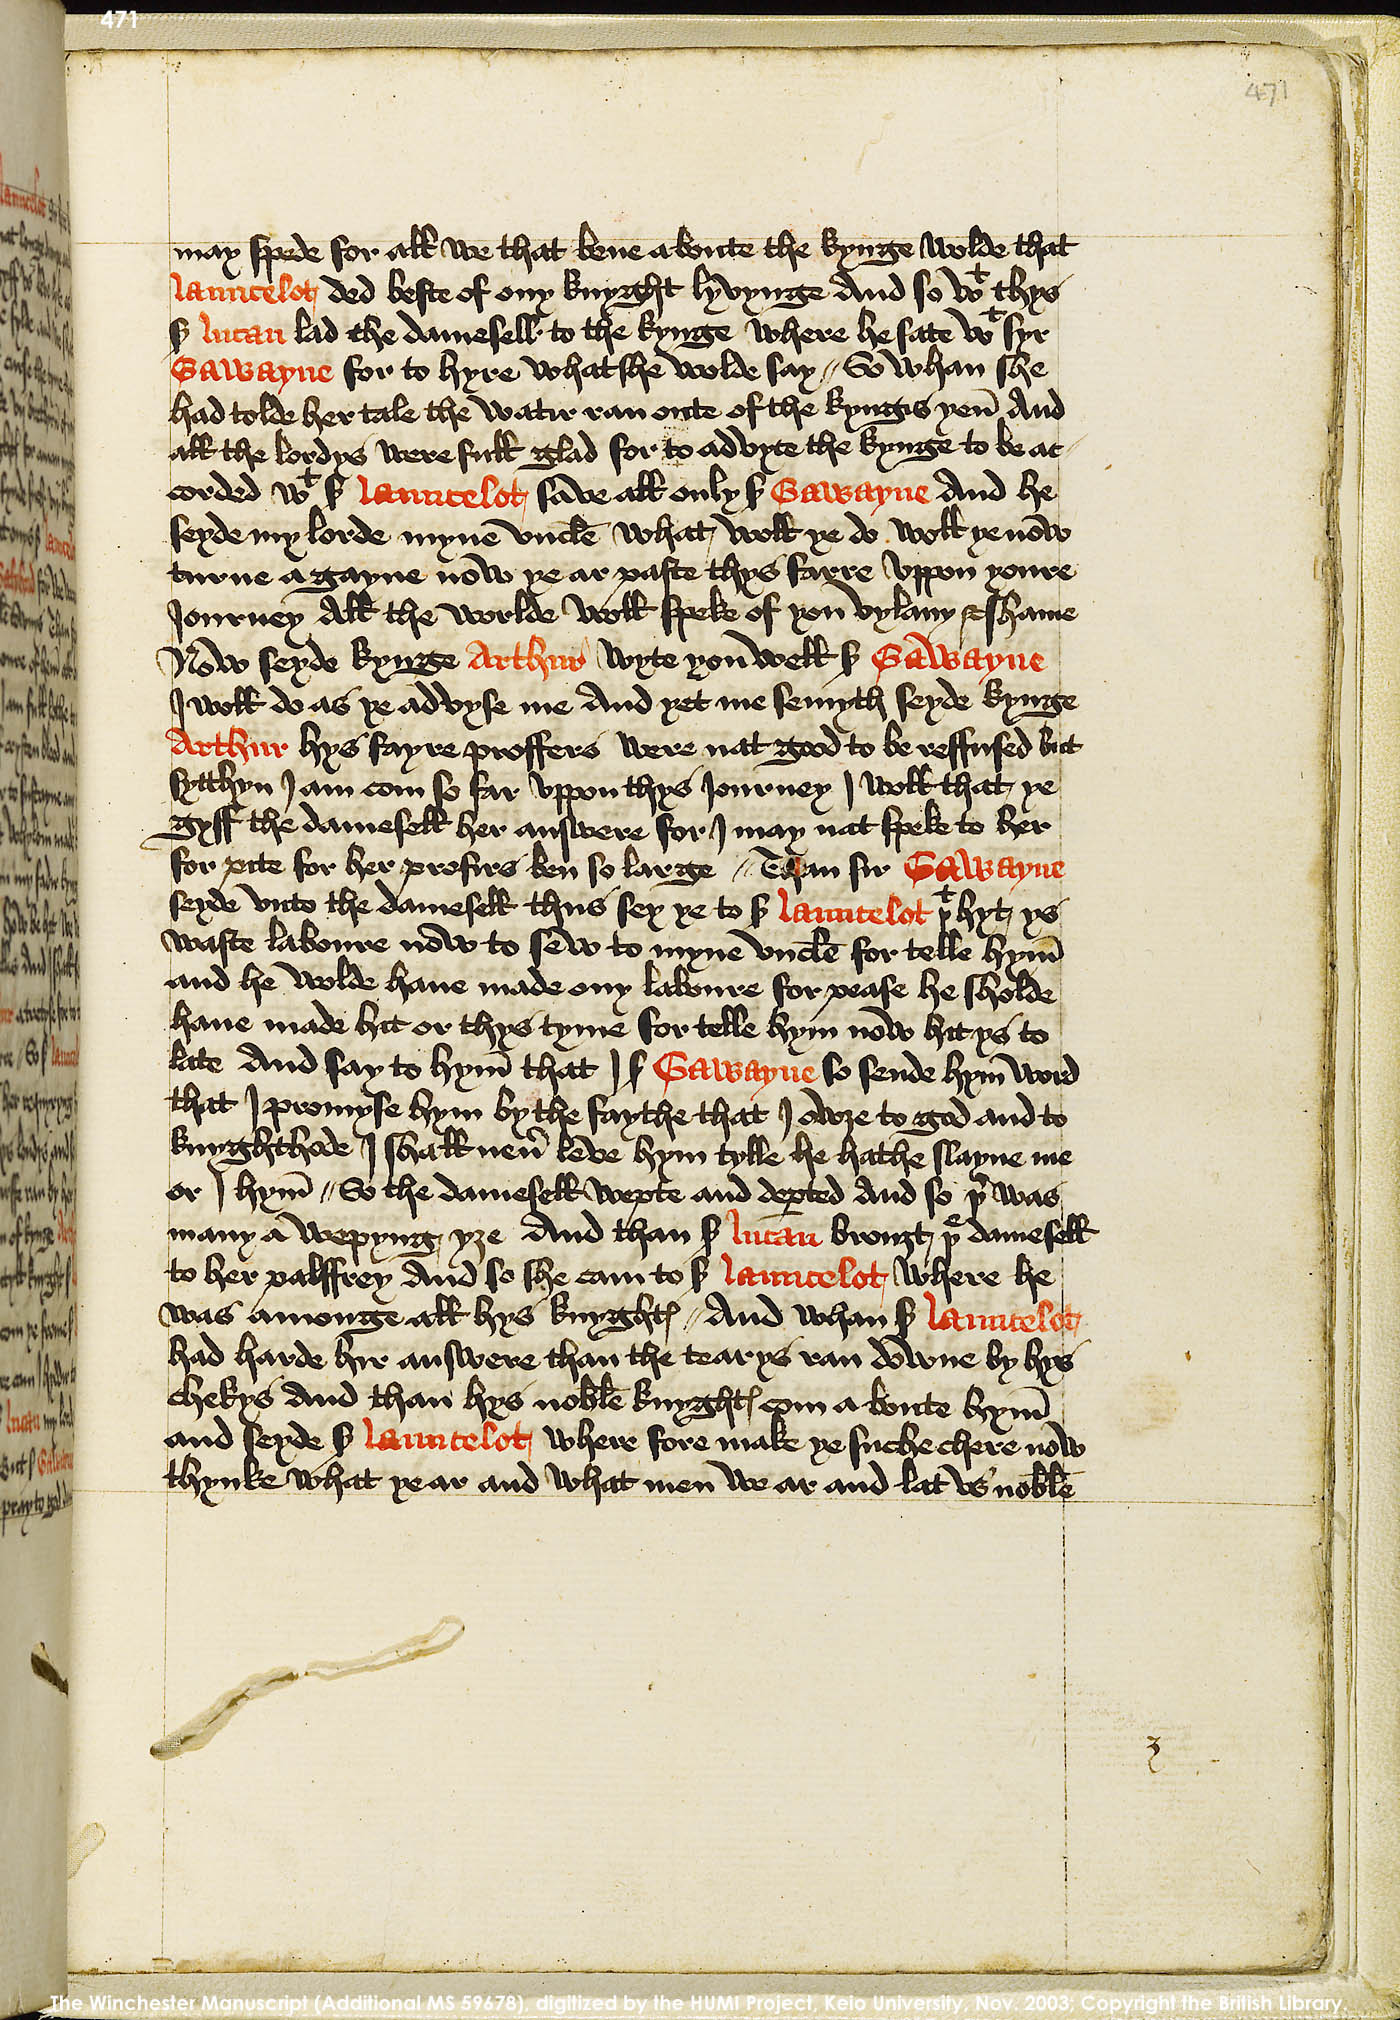 471
471
may spede for all we that bene aboute the kynge wolde that
launcelot ded beste of ony knyght lyvynge And so wt thys
s lucan lad the damesell to the kynge where he sate wt syr
Gawayne for to hyre what she wolde say // So whan she
had tolde her tale the watir ran oute of the kyngis yen And
all the lordys were full glad for to advyce the kynge to be ac-
corded wt s launcelot save all only s Gawayne And he
seyde my lorde myne uncle what woll ye do woll ye now
turne a gayne now ye ar paste thys farre uppon youre
Journey All the worlde woll speke of you vylany & shame
Now seyde kynge Arthur wyte you well s Gawayne
I woll do as ye advyse me And yet me semyth seyde kynge
Arthur hys fayre proffers were nat good to be reffused but
sytthyn I am com so far uppon thys Journey I woll that ye
gyff the damesell her answere for I may nat speke to her
for pite for her profirs ben so large // Than sir Gawayne
seyde unto the damesell thus sey ye to s launcelot þt hyt ys
waste laboure now to sew to myne uncle for telle hym
and he wolde haue made ony laboure for pease he sholde
haue made hit or thys tyme for telle hym now hit ys to
late And say to hym that I s Gawayne so sende hym word
that I promyse hym by the faythe that I owȝe to god and to
knyghthode I shall neu leve hym tylle he hathe slayne me
or I hym // So the damesell wepte and depted And so þr was
many a wepyng yȝe And than s lucan brougt þe damesell
to her palffrey And so she cam to s launcelot where he
was amonge all hys knyghtes // And whan s launcelot
had harde hir answere than the tearys ran downe by hys
chekys And than hys noble knyghtes com a boute hym
and seyde s launcelot where fore make ye suche chere now
thynke what ye ar and what men we ar and lat us noble
The Winchester Manuscript (Additional MS 59678), digitized by the HUMI Project, Keio University, Nov. 2003; Copyright the British Library.